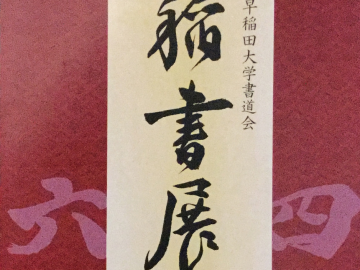 早稲田大学書道会
稲書展
六四